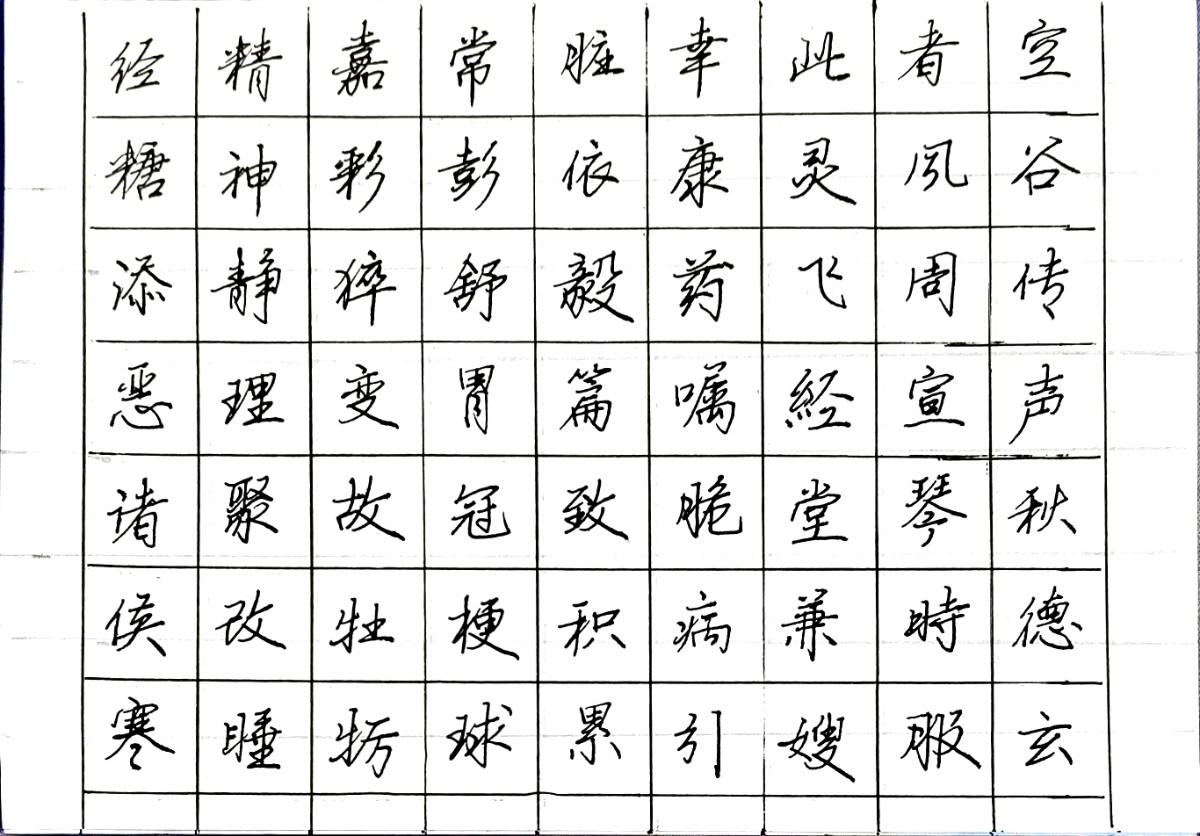 经精嘉常脏幸此者空
糖神彩彭依康灵风谷
添静猝舒毅药飞周传
恶理变胃篇嘱經宣声
诸聚故冠致脆堂琴秋
侯改牡梗积病兼時德
寒睡牡球累引嫂服玄